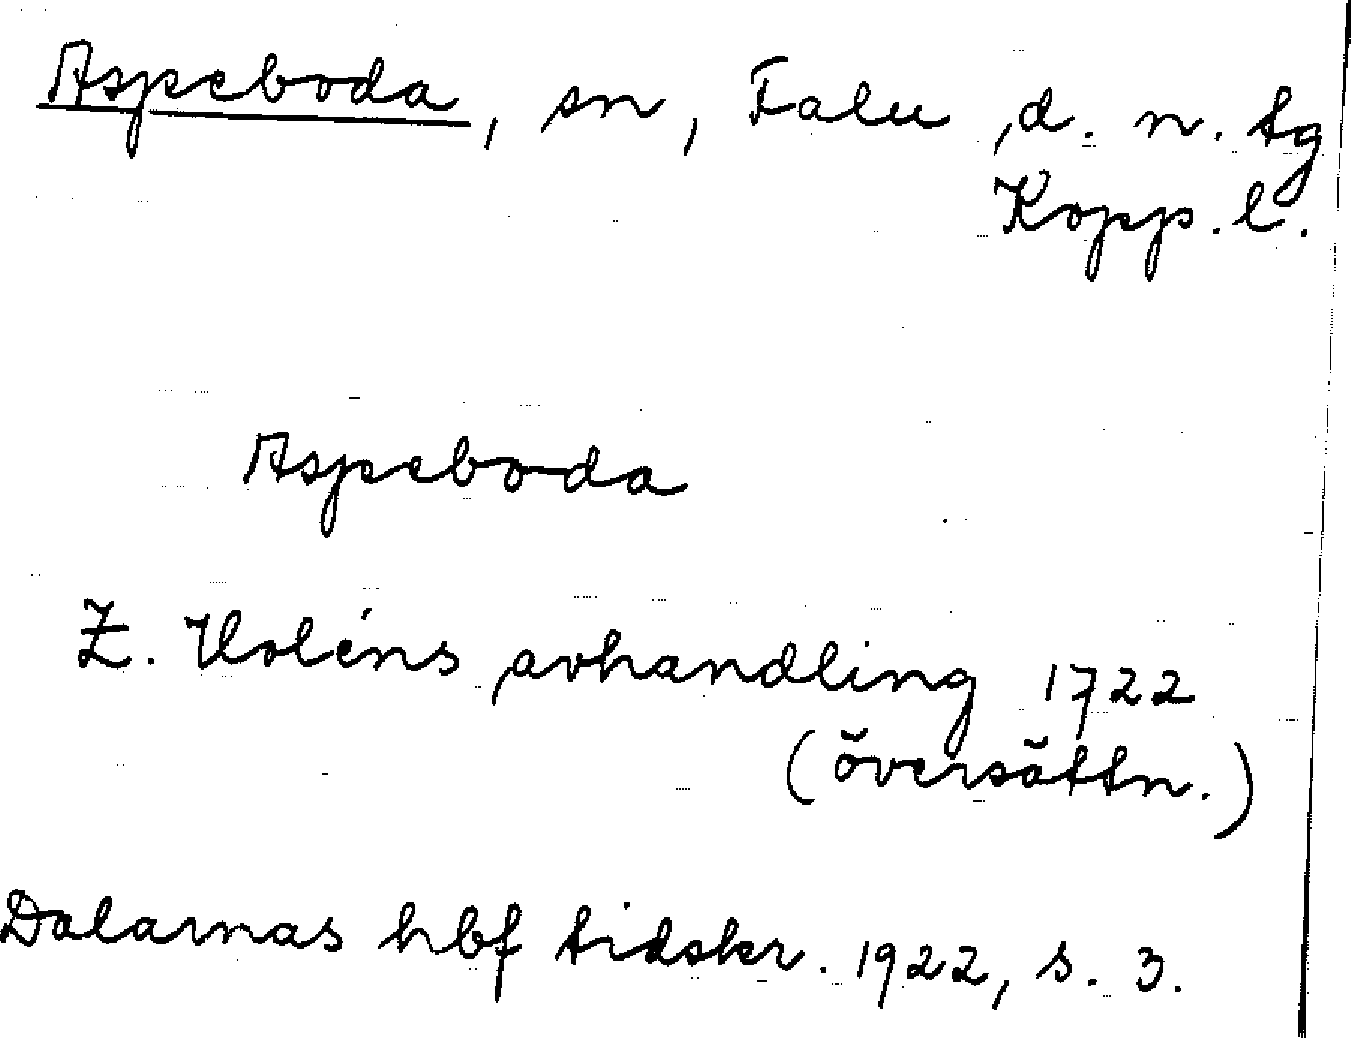 Aspeboda, sn, Falu d. n. tg
Kopp. l.
Aspeboda
Z. Holéns avhandling 1722
(översättn.)
Dalarnas hbf tidskr. 1922, s. 3.